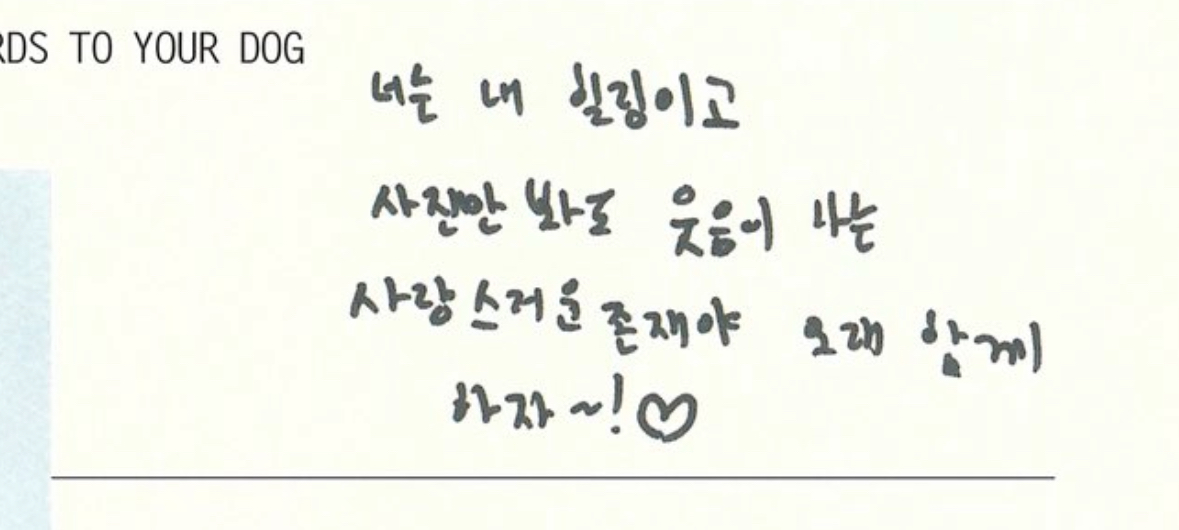 RDS TO YOUR DOG
너는 내 힐링이고
사진만 봐도 웃음이 나는
사랑스러운 존재야 오래 함께
하자~!♡